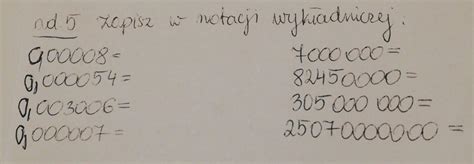 nd 5 zapisz w notacji wykładniczej.
0,00008=
0,000054=
0,003006=
0,000007=
7000000=
82450000=
305000 000=
25070000000=